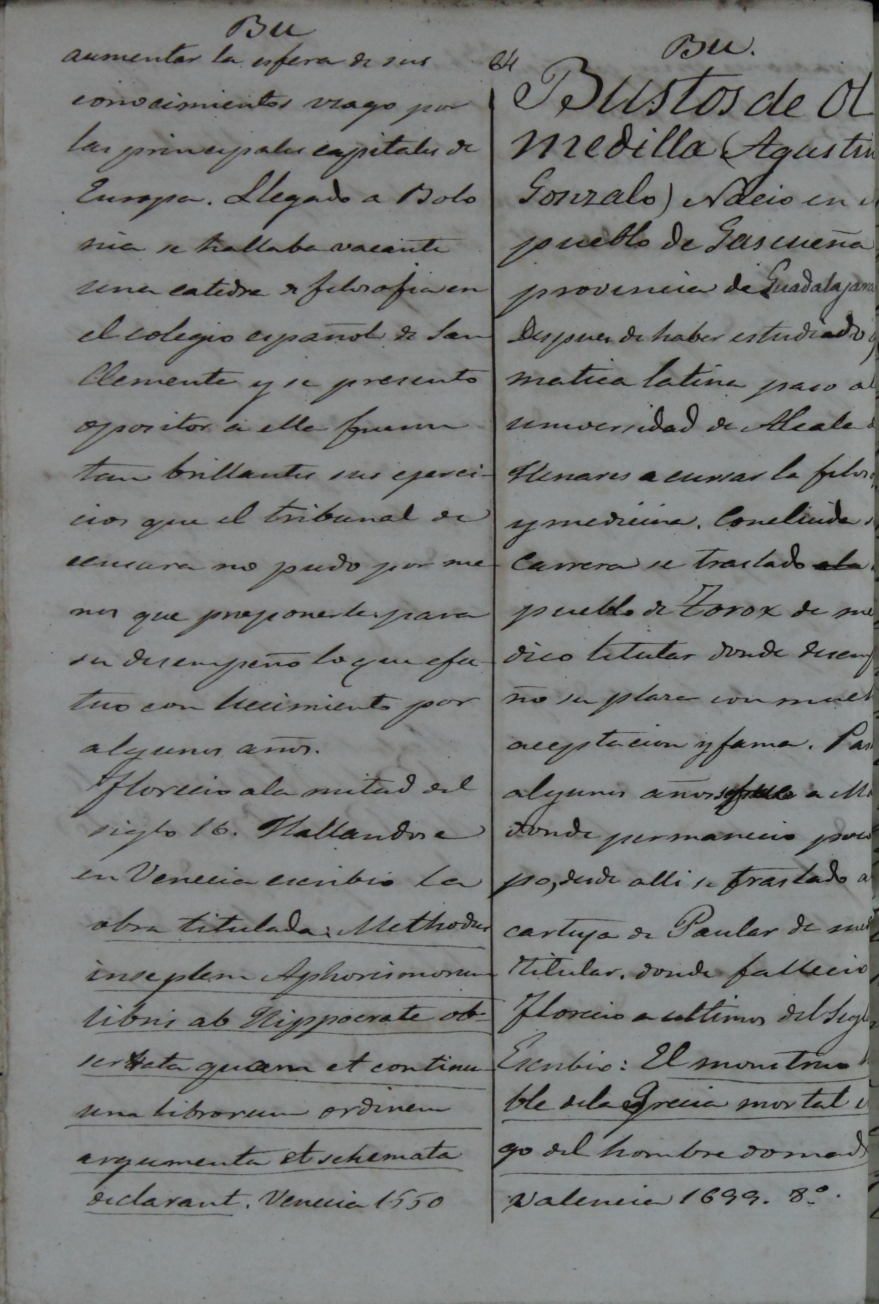 Bu
aumentar la esfera de sus
conocimientos viago por
las principales capitales de
Europa. Llegado a Bolo
nia se hallaba vacante
una catedra de filosofia en
el colegio español de San
Clemente y se presento
opositor a ella fueron
tan brillantes sus egerci-
cios que el tribunal de
censura no pudo por me-
nos que proponerle para
su desempeño lo que efec-
tuo con lucimiento por
algunos años.
Florecio a la mitad del
siglo 16. Hallandose
en Venecia escribio la
obra titulada: Methodus
in septem Aphorismorum
libris ab Hippocrate ob-
servata quaem et continu-
una librorum ordinem
argumenta et schemata
declarant. Venecia 1550
64
Bu.
Bustos de Ol
medilla (Agustin
Gonzalo) Nacio en
pueblo de Gascueña
provincia de Guadalajara
Despues de haber estudiado
matica latina paso a
universidad de Alcala
Henares a cursar la filoso
y medicina. Concluida
Carrera se traslado ala
pueblo de Torox de me
dico titular donde desem
ño su plaza con much
aceptacion y fama. Pas
algunos años fue a M
donde permanecio poco
po, desde alli se traslado a
cartuja de Paular de me
titular. donde fallecio
florecio a ultimos del Sigl
Escribio: El monstruo
ble de la Grecia mortal
go del hombre domad
Valencia 1699. 8º.